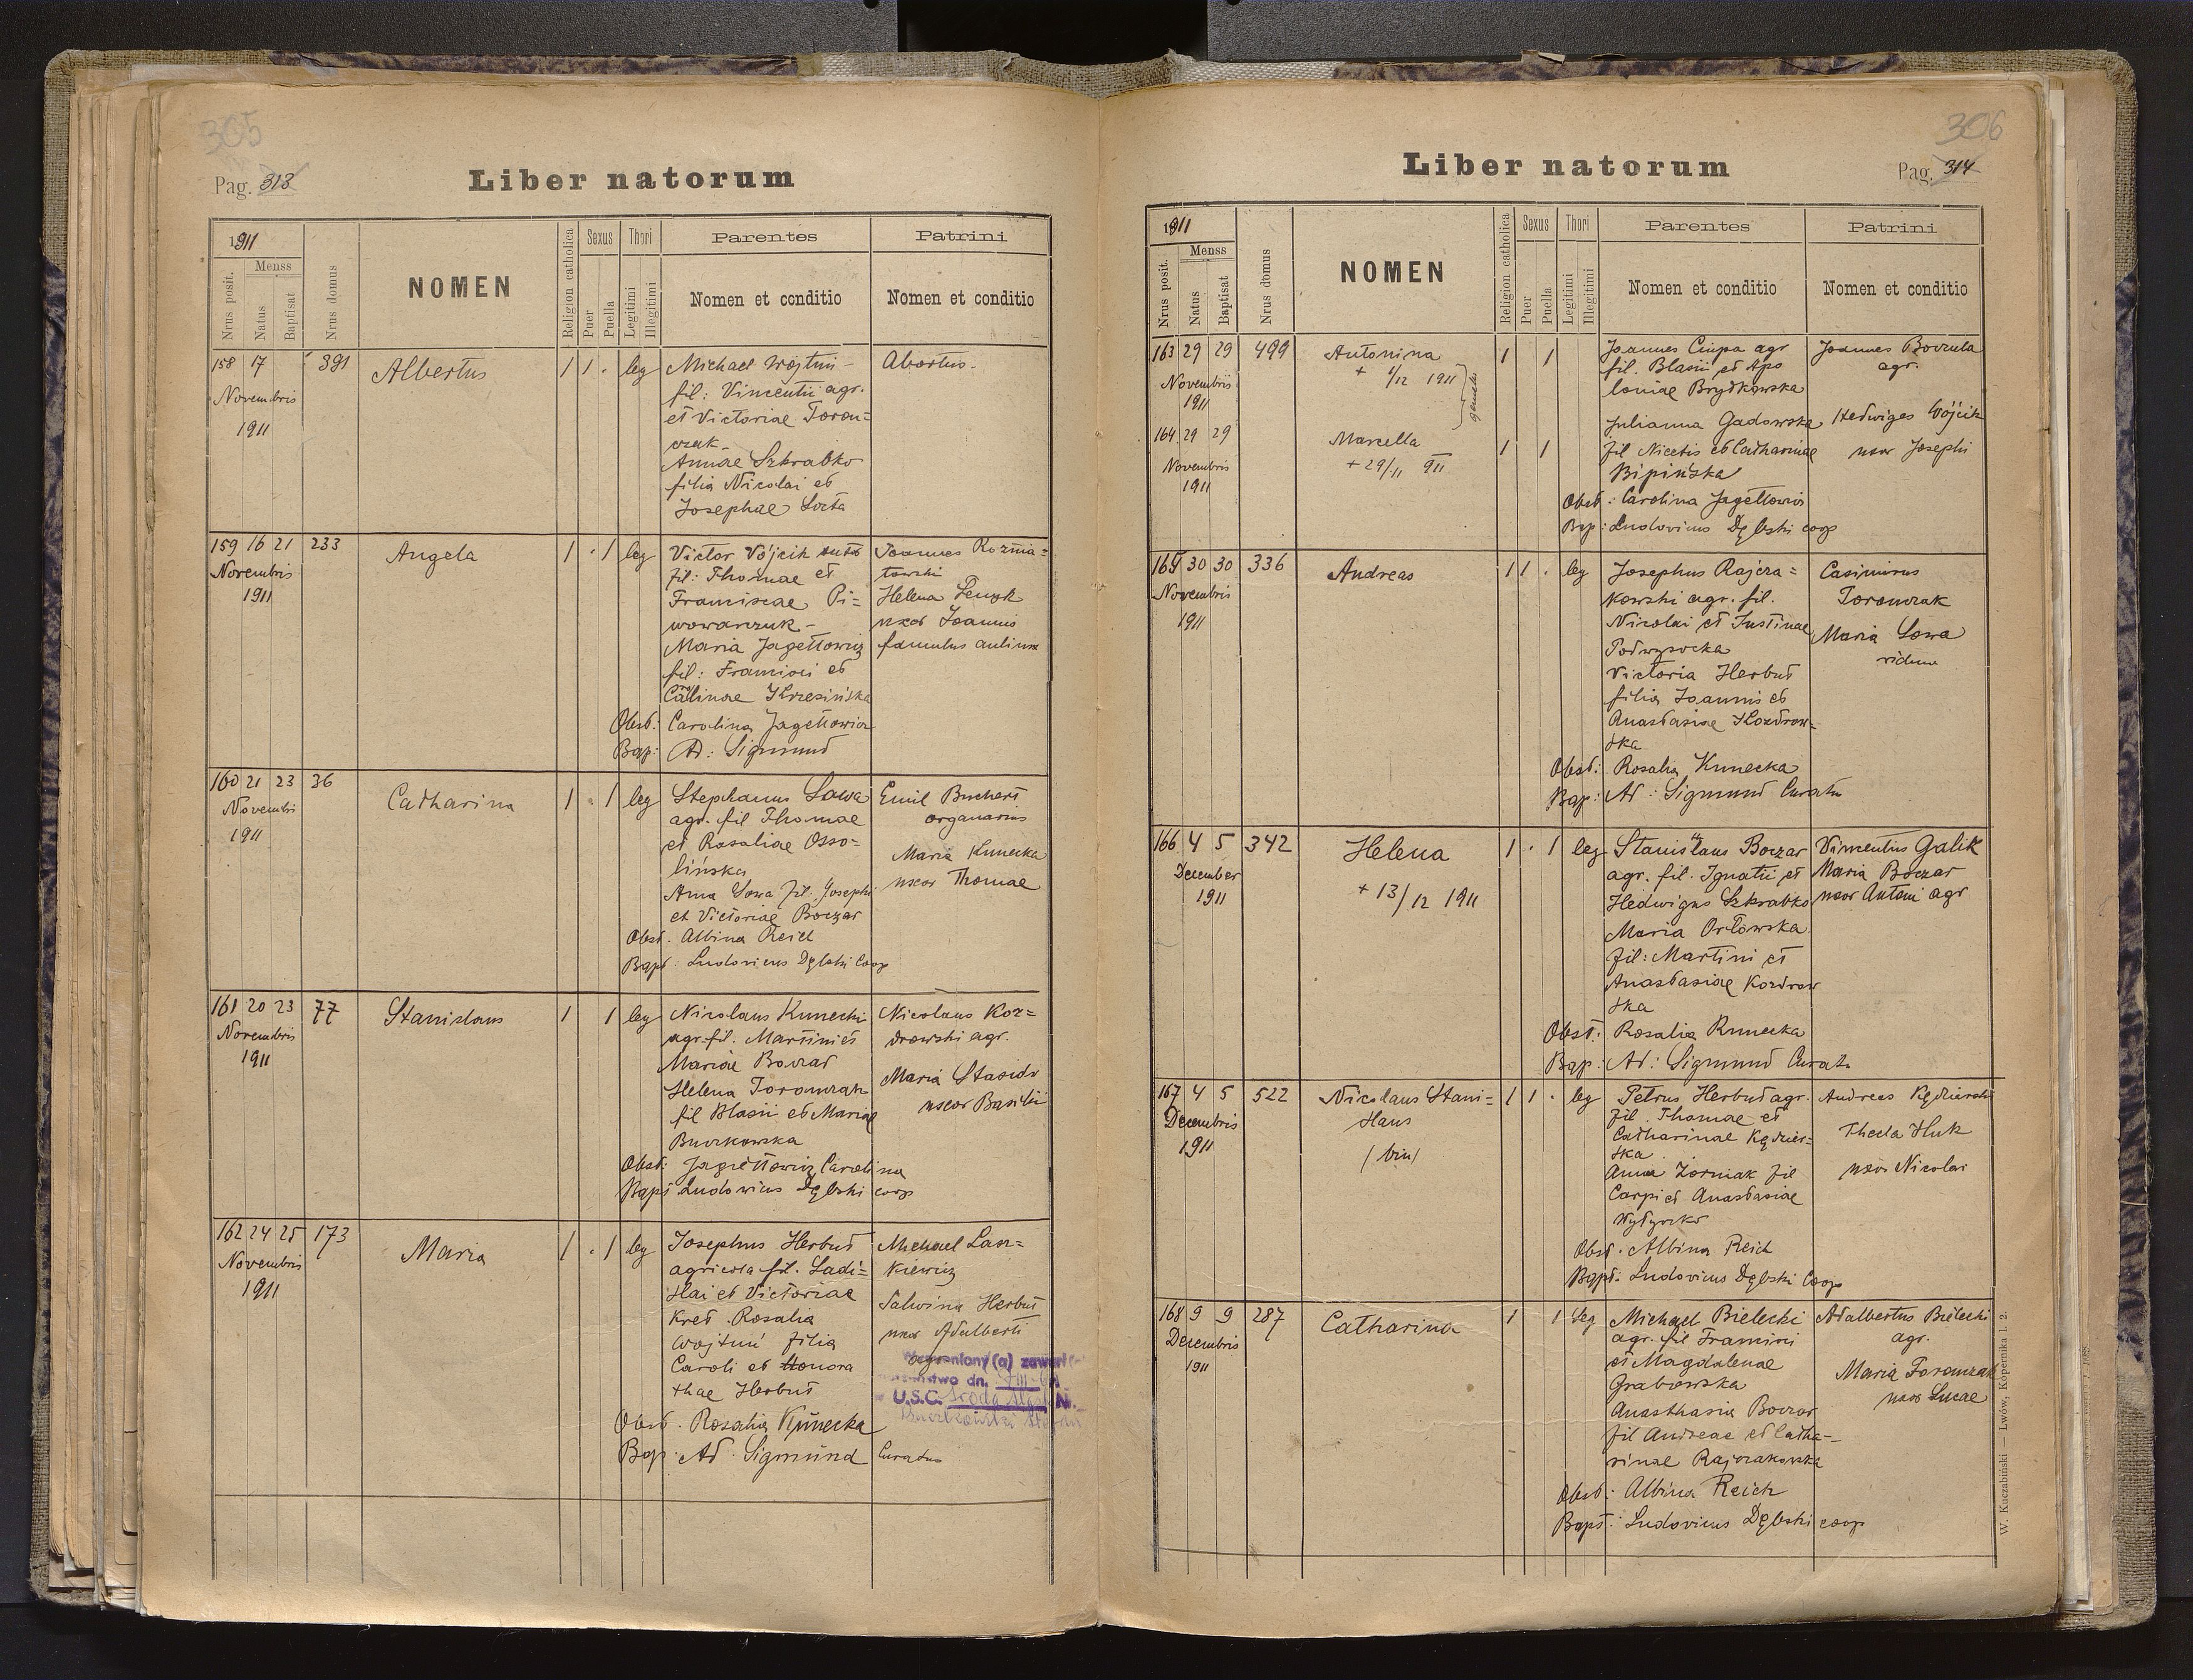 305
Pag. 313
Liber natorum
1911
Menss
Nrus posit.
Natus
Baptisat
Nrus domus
NOMEN
Religion catholica
Sexus
Puer
Puella
Thori
Legitimi
Illegitimi
Parentes
Nomen et conditio
Patrini
Nomen et conditio
158 17 391 Albertus 1 1 . leg
Novembris
1911
Michael Wojtuń
fil: Vincentii agr.
et Victoriae Toron=
czuk
Annae Szkrabko
filia Nicolai et
Josephae
Abortus.
159 16 21 233 Angela 1 . 1 leg
Novembris
1911
Victor Wójcik
fil: Thomae et
Franciscae Pi=
wowarczuk -
Maria Jagiełłowicz
fil: Francisci et
Obst: Carolina Jagiełłowicz
Bap: Ad: Sigmund
Joannes Rozma=
towski
Helena
uxor Joannis
famulus
160 21 23 36 Catharina 1 . 1 leg
Novembri
1911
Stephanus Sowa
agr. fil Thomae
et Rosaliae Osso=
lińska
Anna Sowa fil. Josephi
et Victoriae Boczar
Obst. Albina Reich
Bapt: Ludovicus Dębski Coop
Emil Buchert
organarius
Maria Kunecka
uxor Thomae
161 20 23 77 Stanislaus 1 1 leg
Novembris
1911
Nicolaus Kunecki
agr. fil. Martini et
Mariae Boczar
Helena Toronczak
fil Blasii et Mariae
Buczkowska
Obst: Jagiełłowicz Carolina
Bapt Ludovicus Dębski coop
Nicolaus Koz=
drowski agr.
Maria
uxor Basilii
162 24 25 173 Maria 1 . 1 leg
Novembris
1911
Josephus Herbut
agricola fil. Ladi=
slai et Victoriae
Kret. Rosalia
Wojtuń filia
Caroli et Honora
thae Herbut
Obst. Rosalia Kunecka
Bap: Ad. Sigmund Curatus
Michael Lasz=
kiewicz
Salwina Herbut
uxor Adalberti
agr.
Wymieniony (a) zawarł
dn.
U.S.C. Środa Śląska N.
306
Liber natorum
Pag. 314
1911
Menss
Nrus posit.
Natus
Baptisat
Nrus domus
NOMEN
Religion catholica
Sexus
Puer
Puella
Thori
Legitimi
Illegitimi
Parentes
Nomen et conditio
Patrini
Nomen et conditio
163 29 29 499 Antonina 1 1
+ 1/12 1911
Novembris
1911
gemelli
164 29 29 Marcella 1 1
+ 29/11 911
Novembris
1911
Joannes Ciupa agr
fil. Blasii et Apo
loniae Brydkowska
Julianna Gadowska
fil Nicetis et Catharinae
Bipińska
Obst: Carolina Jagiełłowicz
Bap: Ludovicus Dębski coop
Joannes Boczula
agr.
Hedwiges Wójcik
uxor Josephi
165 30 30 336 Andreas 1 1 . leg
Novembris
1911
Josephus Rajcza=
kowski agr. fil.
Nicolai et Justinae
Podwysocka
Victoria Herbut
filia Joannis et
Anastasiae Kozdrow=
ska
Obst: Rosalia Kunecka
Bap: Ad: Sigmund Curatu
Casimirus
Toronczak
Maria Sowa
vidua
166 4 5 342 Helena 1 . 1 leg
December
1911
+ 13/12 1911
Stanislaus Boczar
agr. fil. Ignatii et
Hedwigus Szkrabko
Maria Orłowska
fil: Martini et
Anastasiae Kozdrow
ska
Obst: Rosalia Kunecka
Bap: Ad: Sigmund Curatu
Vincentius Galik
Maria Boczar
uxor Antoni agr
167 4 5 522 Nicolaus Stani= 1 1 . leg
slaus
/ bin/
Decembris
1911
Petrus Herbut agr.
fil. Thomae et
Catharinae Kędzier=
ska
Anna Zorniak fil
Carpi et Anastasiae
Obst. Albina Reich
Bapt: Ludovicus Dębski Coop
Andreas Kędzierski
Thecla Huk
uxor Nicolai
168 9 9 287 Catharina 1 1 leg
Decembris
1911
Michael Bielecki
agr. fil Francisci
et Magdalenae
Grabowska
Anasthasia Boczar
fil Andreae et Catha-
rinae Rajczakowska
Obst: Albina Reich
Bapt: Ludovicus Dębski coop
Adalbertus Bielecki
agr.
Maria Toronczak
uxor Lucae
W. Kuczabiński — Lwów, Kopernika l. 2.